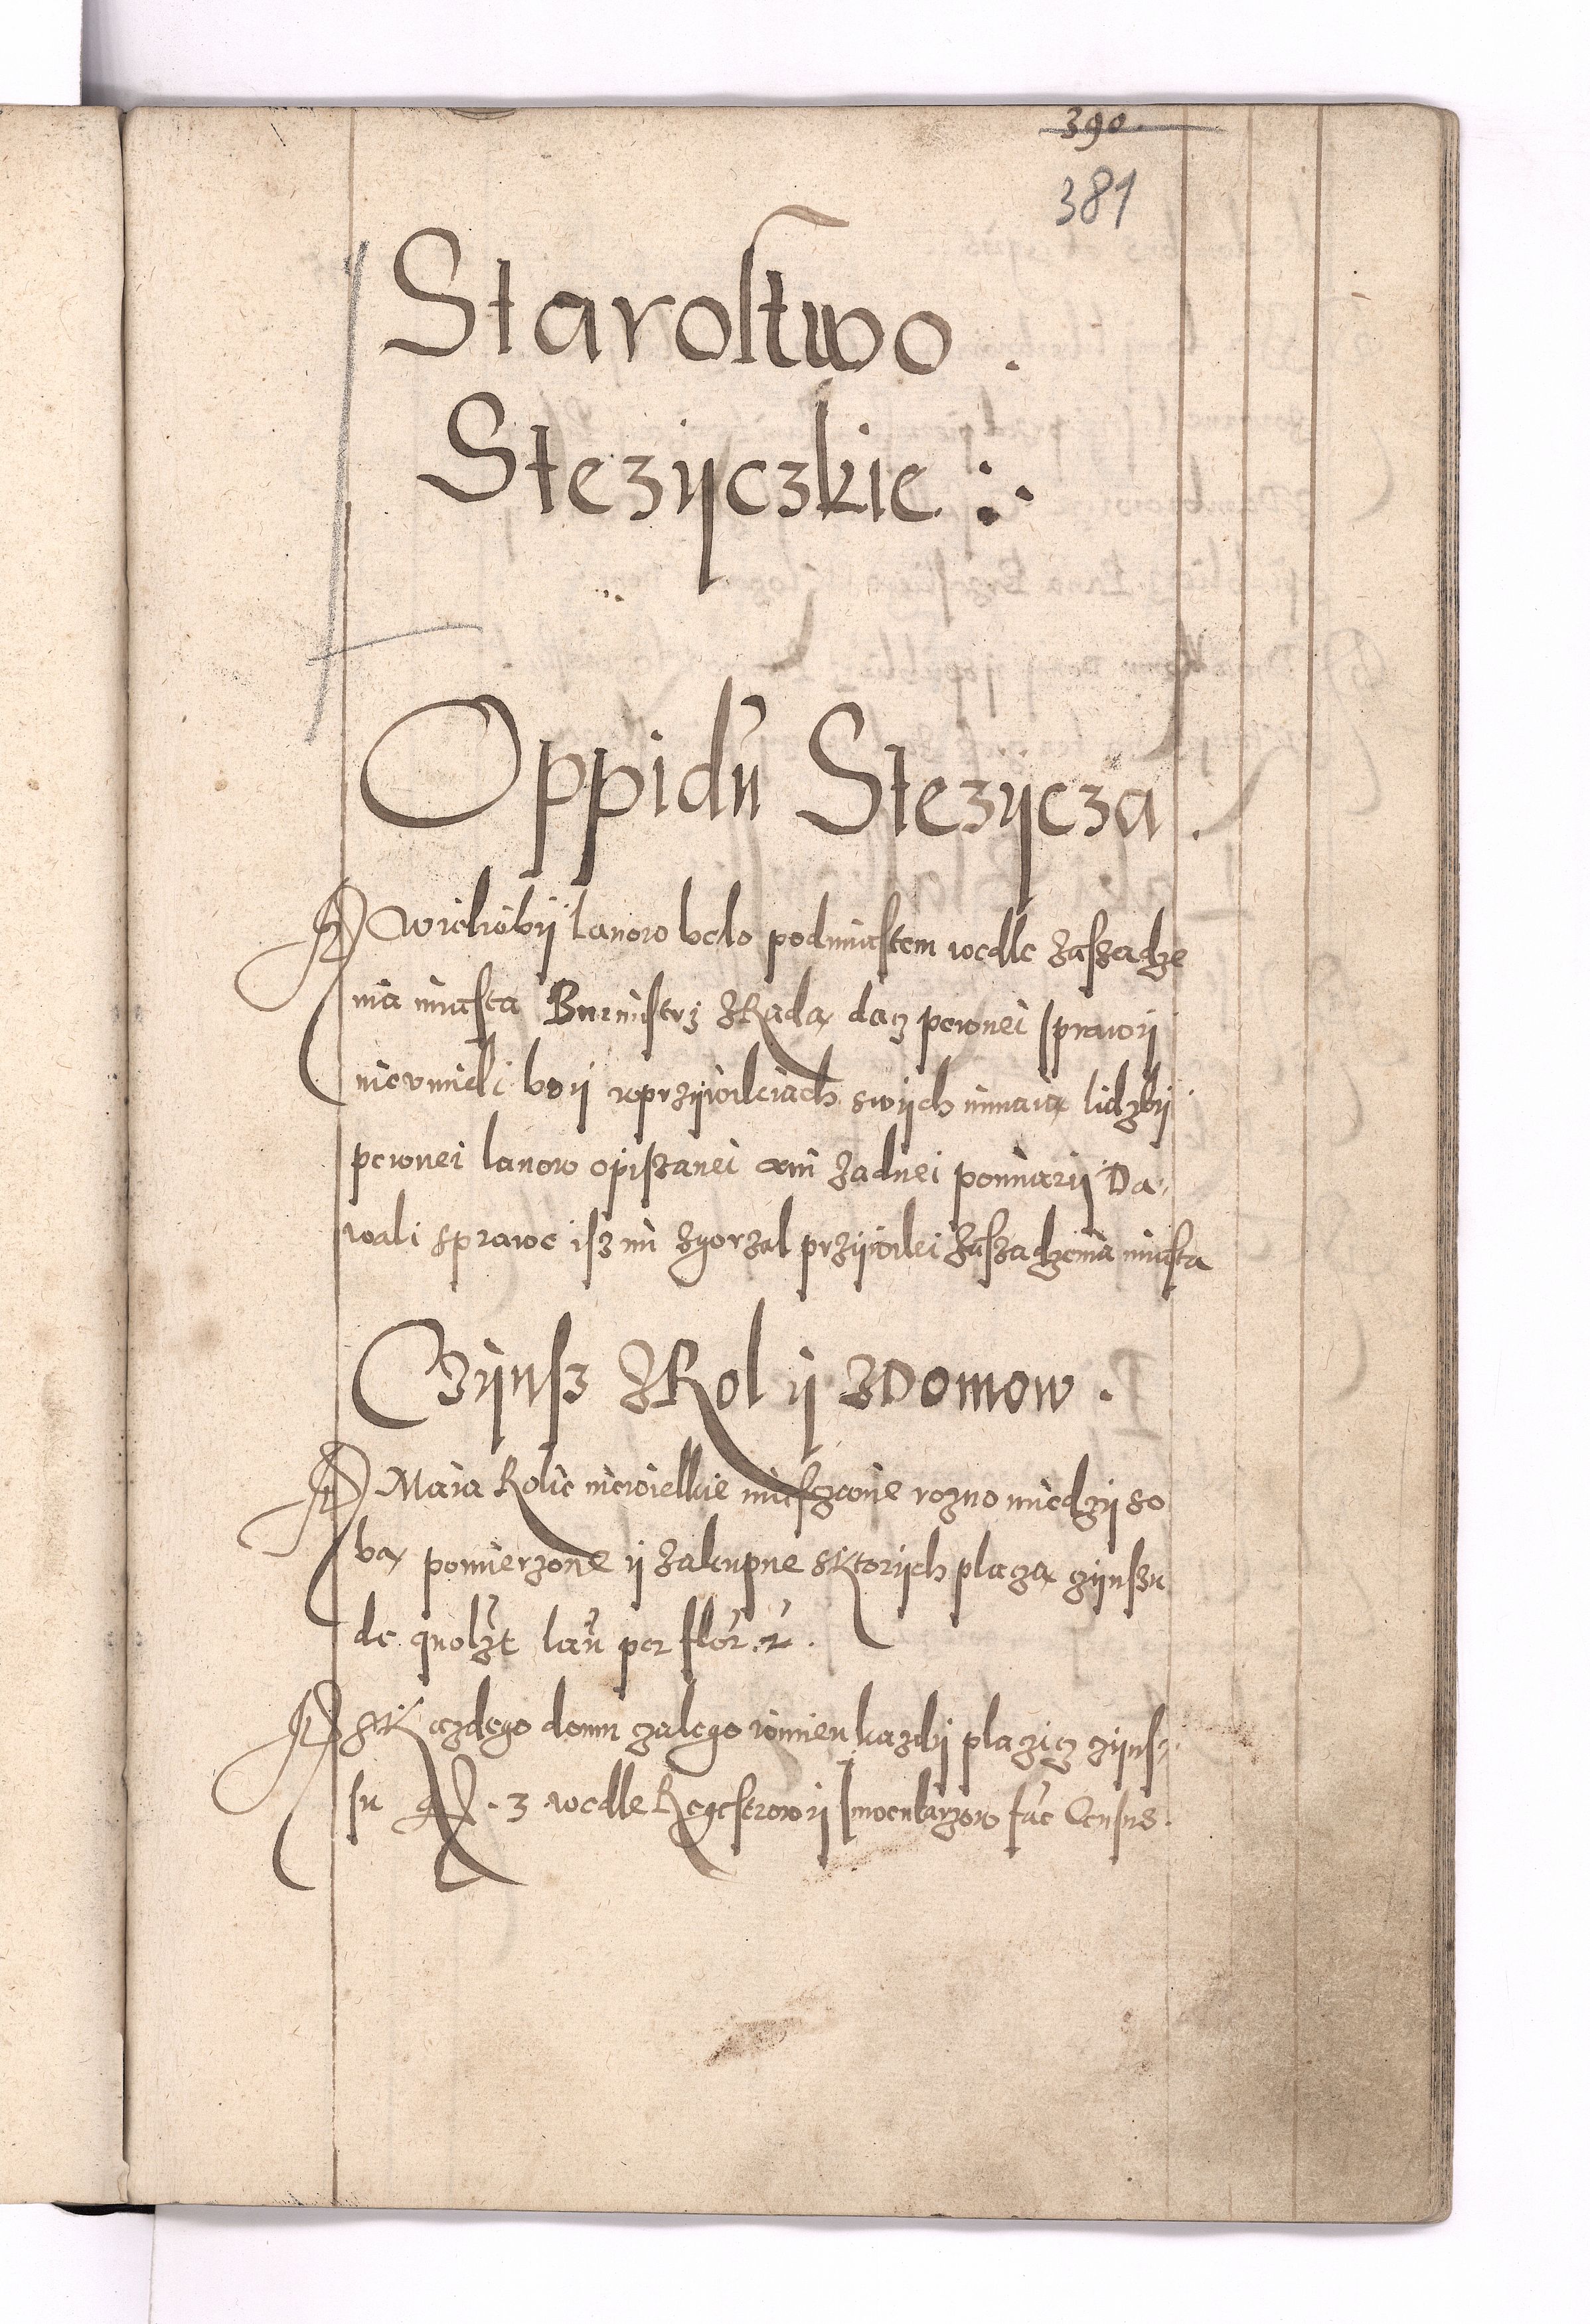 390
381
Starostwo.
Stezÿczkie :·
Oppidū Stezÿcza.
Wieliabÿ lanow belo podmiastem wedle zaszadze
nia miasta Burmistrz zRada dacz pewnei sprawÿ
nievmieli bo ÿ wprzÿwileiach swÿch nimaia lidzbÿ
pewnei lanow opiszanei ani zadnei pomiarÿ Da-
wali sprawe isz im zgorzal przÿwilei zaszadzenia miasta
Czÿnsz zRol ÿ zDomow.
Maia Rolie niewielkie miesczanie rozno miedzÿ so
ba pomierzone ÿ zakupne sktorÿch placza czÿnszu
de quolzt lan per flor. 2.
sKazdego domu czalego wimien kazdÿ placzicz czÿns-
su gr. 3 wedle Regestrowÿ facit Census.